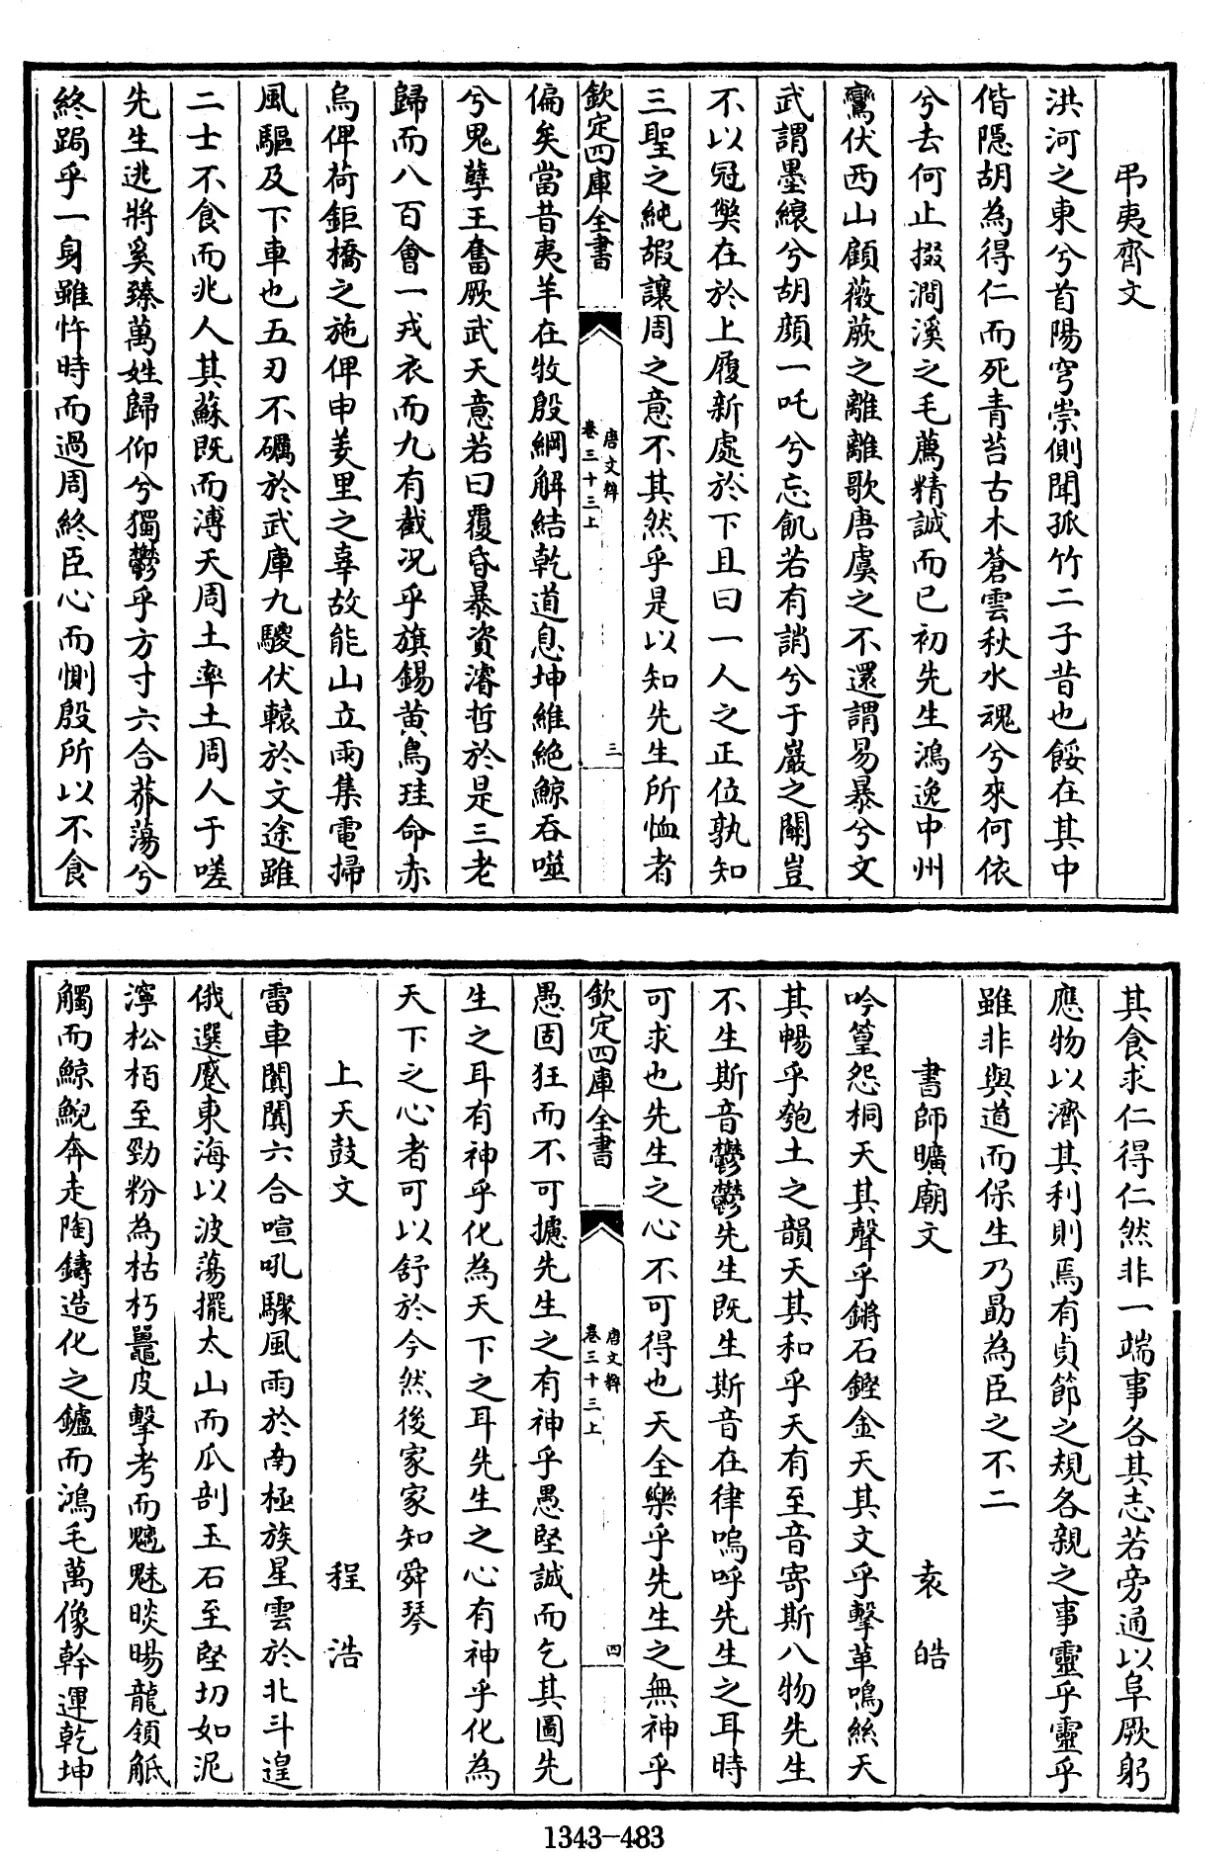 弔夷齊文
洪河之東兮首陽穹崇側聞孤竹二子昔也餒在其中
偕隱胡為得仁而死青苔古木蒼雲秋水魂兮來何依
兮去何止掇澗溪之毛薦精誠而已初先生鴻逸中州
鸞伏西山顧薇蕨之離離歌唐虞之不還謂易暴兮文
武謂墨縗兮胡顏一吒兮忘飢若有誚兮于巖之闗豈
不以冠獘在於上履新處於下且曰一人之正位孰知
三聖之純嘏讓周之意不其然乎是以知先生所恤者
欽定四庫全書
唐文粹
卷三十三上
三
偏矣當昔夷羊在牧殷綱解結乾道息坤維絶鯨吞噬
兮鬼孽王奮厥武天意若曰覆昏暴資濬哲於是三老
歸而八百會一戎衣而九有截況乎旗錫黄鳥珪命赤
烏俾荷鉅橋之施俾申羑里之辜故能山立雨集電掃
風驅及下車也五刃不礪於武庫九駿伏轅於文途雖
二士不食而兆人其蘇既而溥天周土率土周人于嗟
先生逃將奚臻萬姓歸仰兮獨鬱乎方寸六合莽蕩兮
終跼乎一身雖忤時而過周終臣心而惻殷所以不食
其食求仁得仁然非一端事各其志若旁通以阜厥躬
應物以濟其利則焉有貞節之規各親之事靈乎靈乎
雖非與道而保生乃勗為臣之不二
書師曠廟文 袁皓
吟篁怨桐天其聲乎鏘石鏗金天其文乎擊革鳴絲天
其暢乎匏土之韻天其和乎天有至音寄斯八物先生
不生斯音鬱鬱先生既生斯音在律嗚呼先生之耳時
可求也先生之心不可得也天全樂乎先生之無神乎
欽定四庫全書
唐文粹
卷三十三上
四
愚固狂而不可攄先生之有神乎愚堅誠而乞其圖先
生之耳有神乎化為天下之耳先生之心有神乎化為
天下之心者可以舒於今然後家家知舜琴
上天鼓文 程浩
雷車闐闐六合喧吼驟風雨於南極族星雲於北斗遑
俄選蹙東海以波蕩擺太山而瓜剖玉石至堅切如泥
濘松栢至勁粉為枯朽鼉皮擊考而魑魅睒睗龍領觝
觸而鯨鯢奔走陶鑄造化之鑪而鴻毛萬像幹運乾坤
1343-483